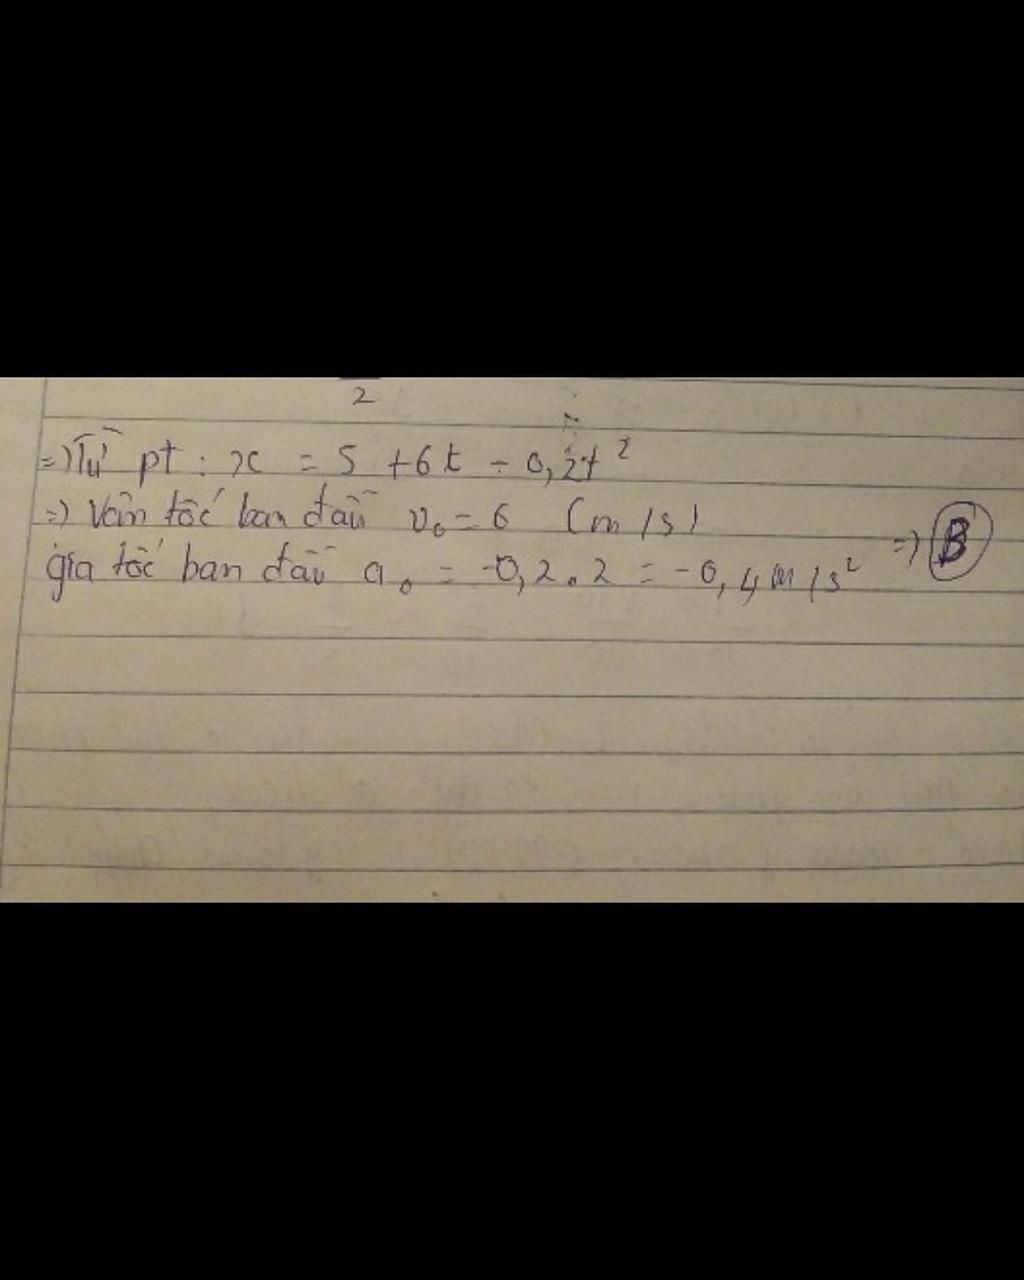 2
=) Từ pt : x = 5 + 6t - 0,2t²
=) Vân tốc ban đầu v₀ = 6 (m/s)
gia tốc ban đầu a₀ = -0,2.2 = -0,4m/s² =) B